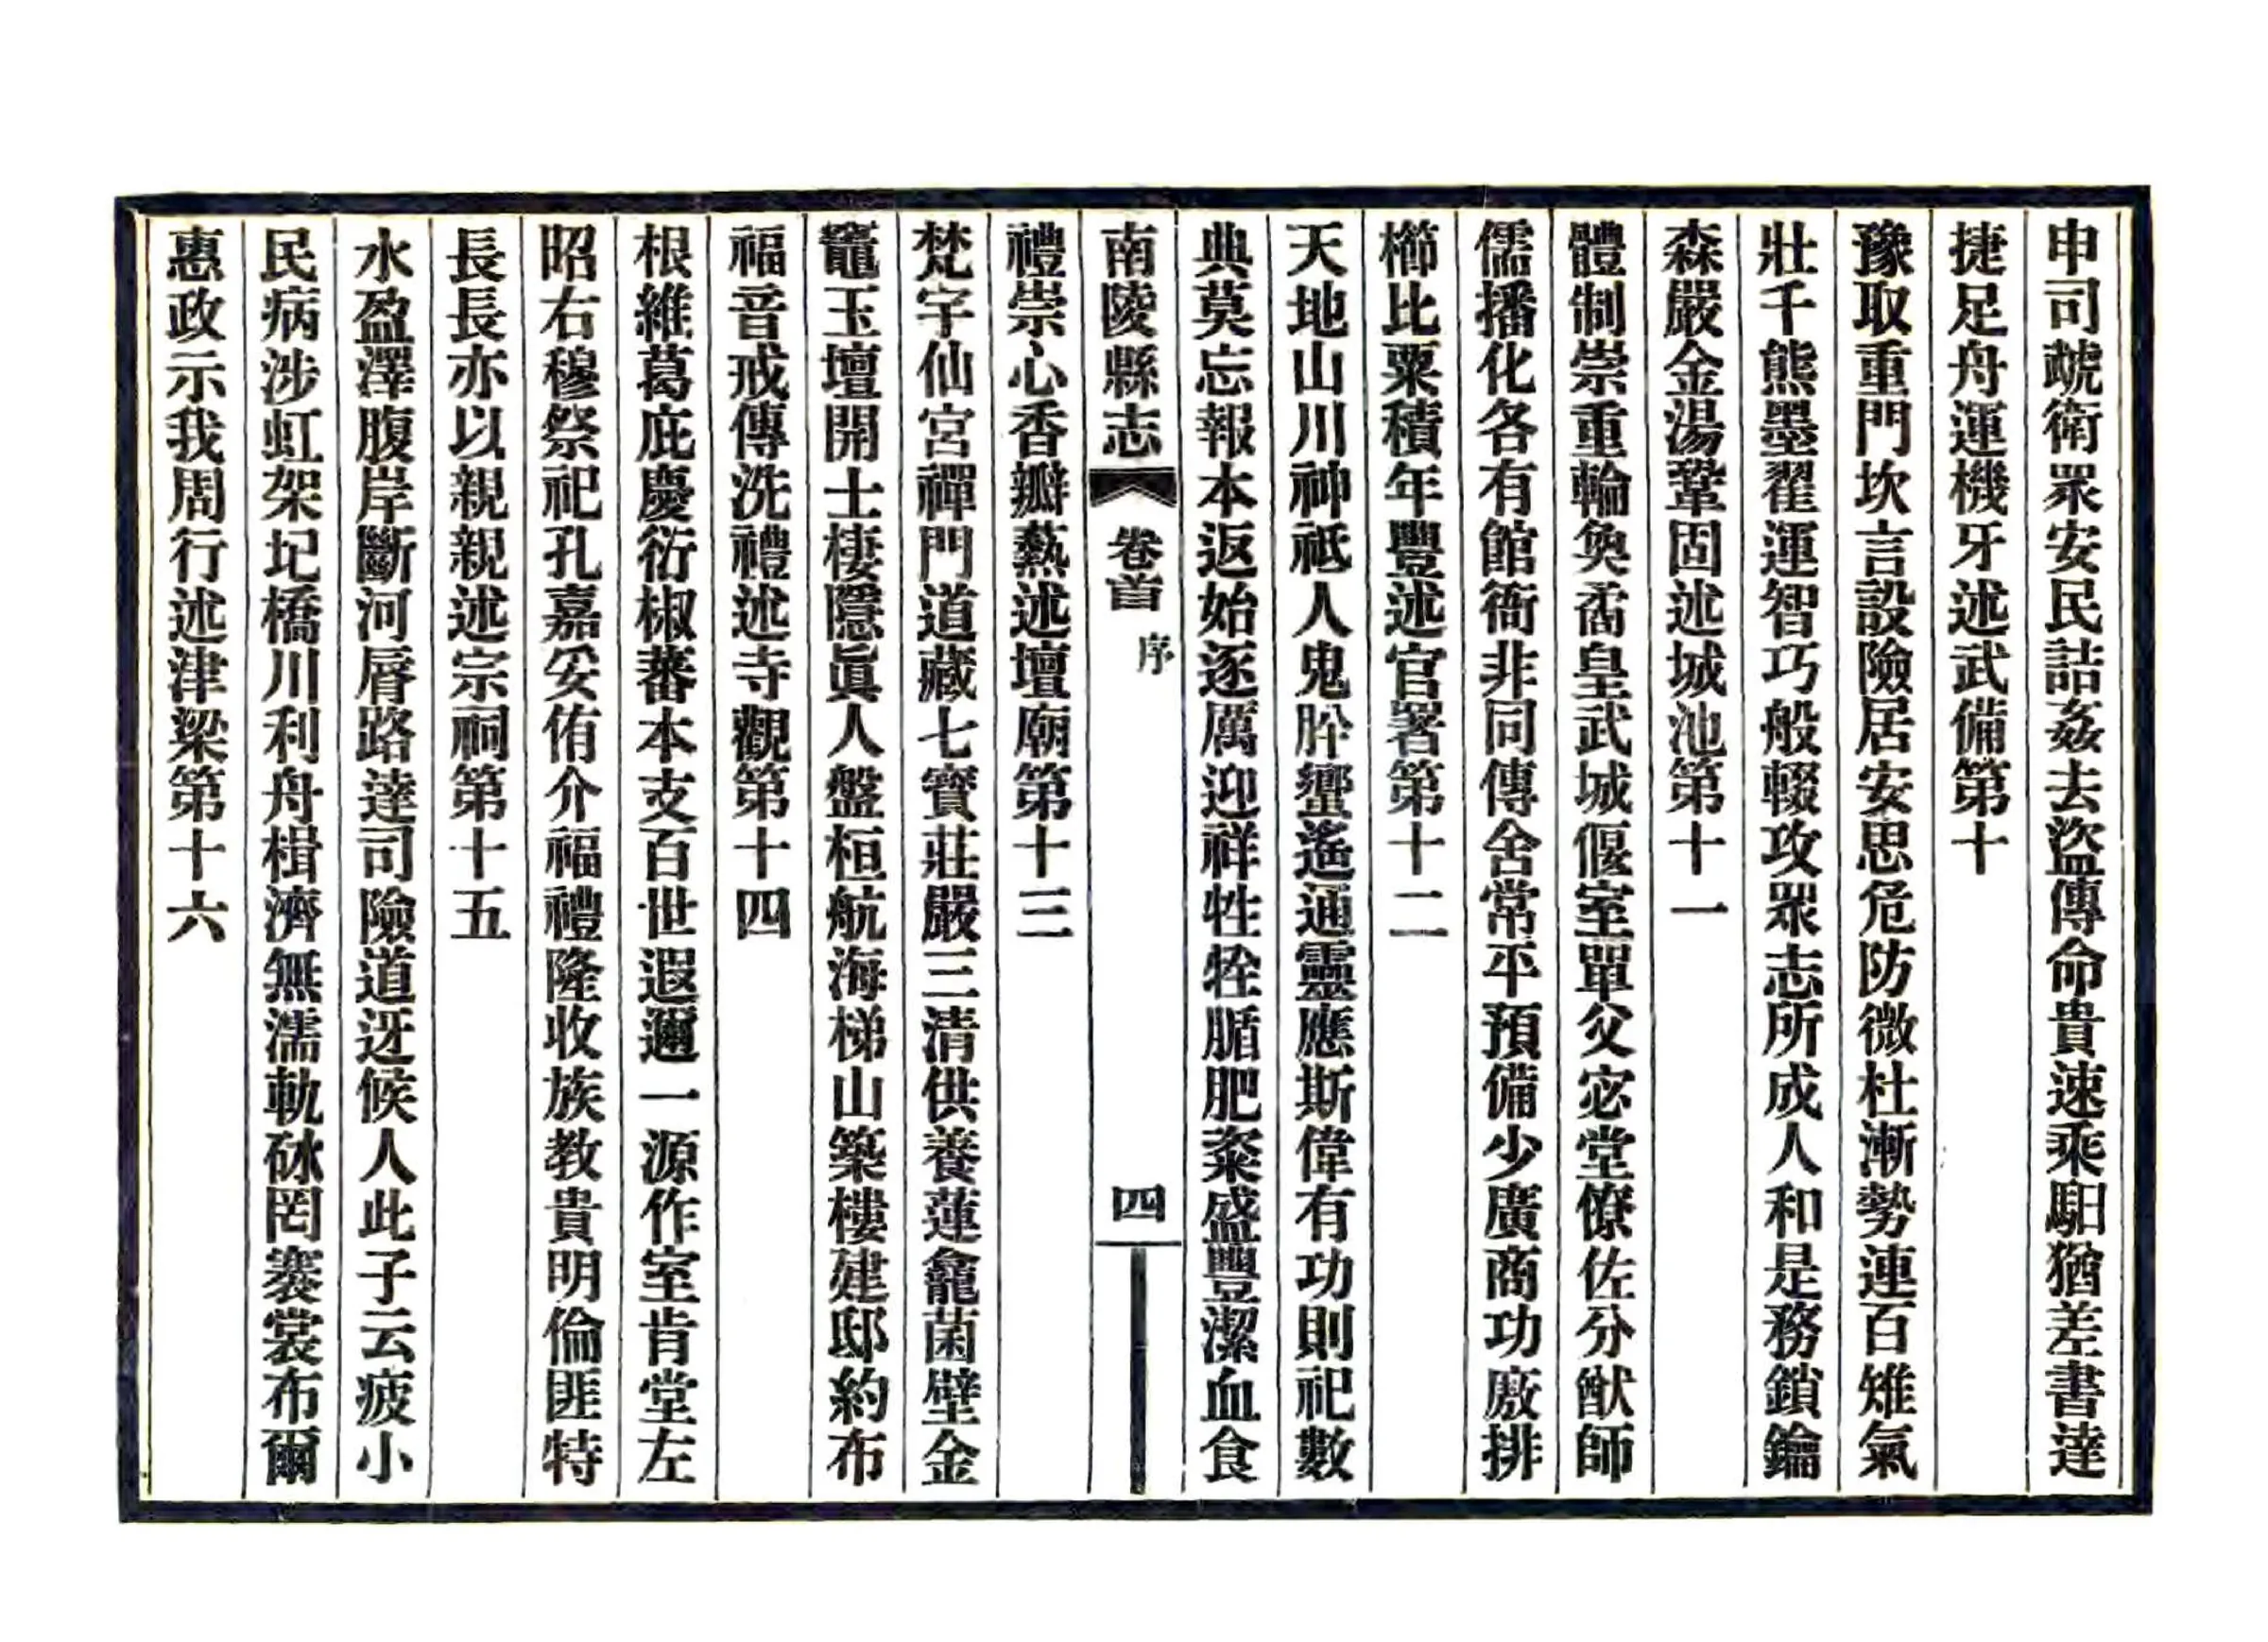 申司虣衛眾安民詰姦去盜傳命貴速乘馹猶差書達
捷足舟運機牙述武備第十
豫取重門坎言設險居安思危防微杜漸勢連百雉氣
壯千熊墨翟運智巧般輟攻眾志所成人和是務鎖鑰
森嚴金湯鞏固述城池第十一
體制崇重輪奐矞皇武城偃室單父宓堂僚佐分猷師
儒播化各有館衙非同傳舍常平預備少廣商功廒排
櫛比粟積年豐述官署第十二
天地山川神祇人鬼肸蠁遙通靈應斯偉有功則祀數
典莫忘報本返始逐厲迎祥牲牷腯肥粢盛豐潔血食
南陵縣志
卷首
序
四
禮崇心香瓣爇述壇廟第十三
梵宇仙宮禪門道藏七寶莊嚴三清供養蓮龕菌壁金
竈玉壇開士棲隱眞人盤桓航海梯山築樓建邸約布
福音戒傳洗禮述寺觀第十四
根維葛庇慶衍椒蕃本支百世遐邇一源作室肯堂左
昭右穆祭祀孔嘉妥侑介福禮隆收族教貴明倫匪特
長長亦以親親述宗祠第十五
水盈澤腹岸斷河脣路達司險道迓候人此子云疲小
民病涉虹架圮橋川利舟楫濟無濡軌砅罔褰裳布爾
惠政示我周行述津梁第十六